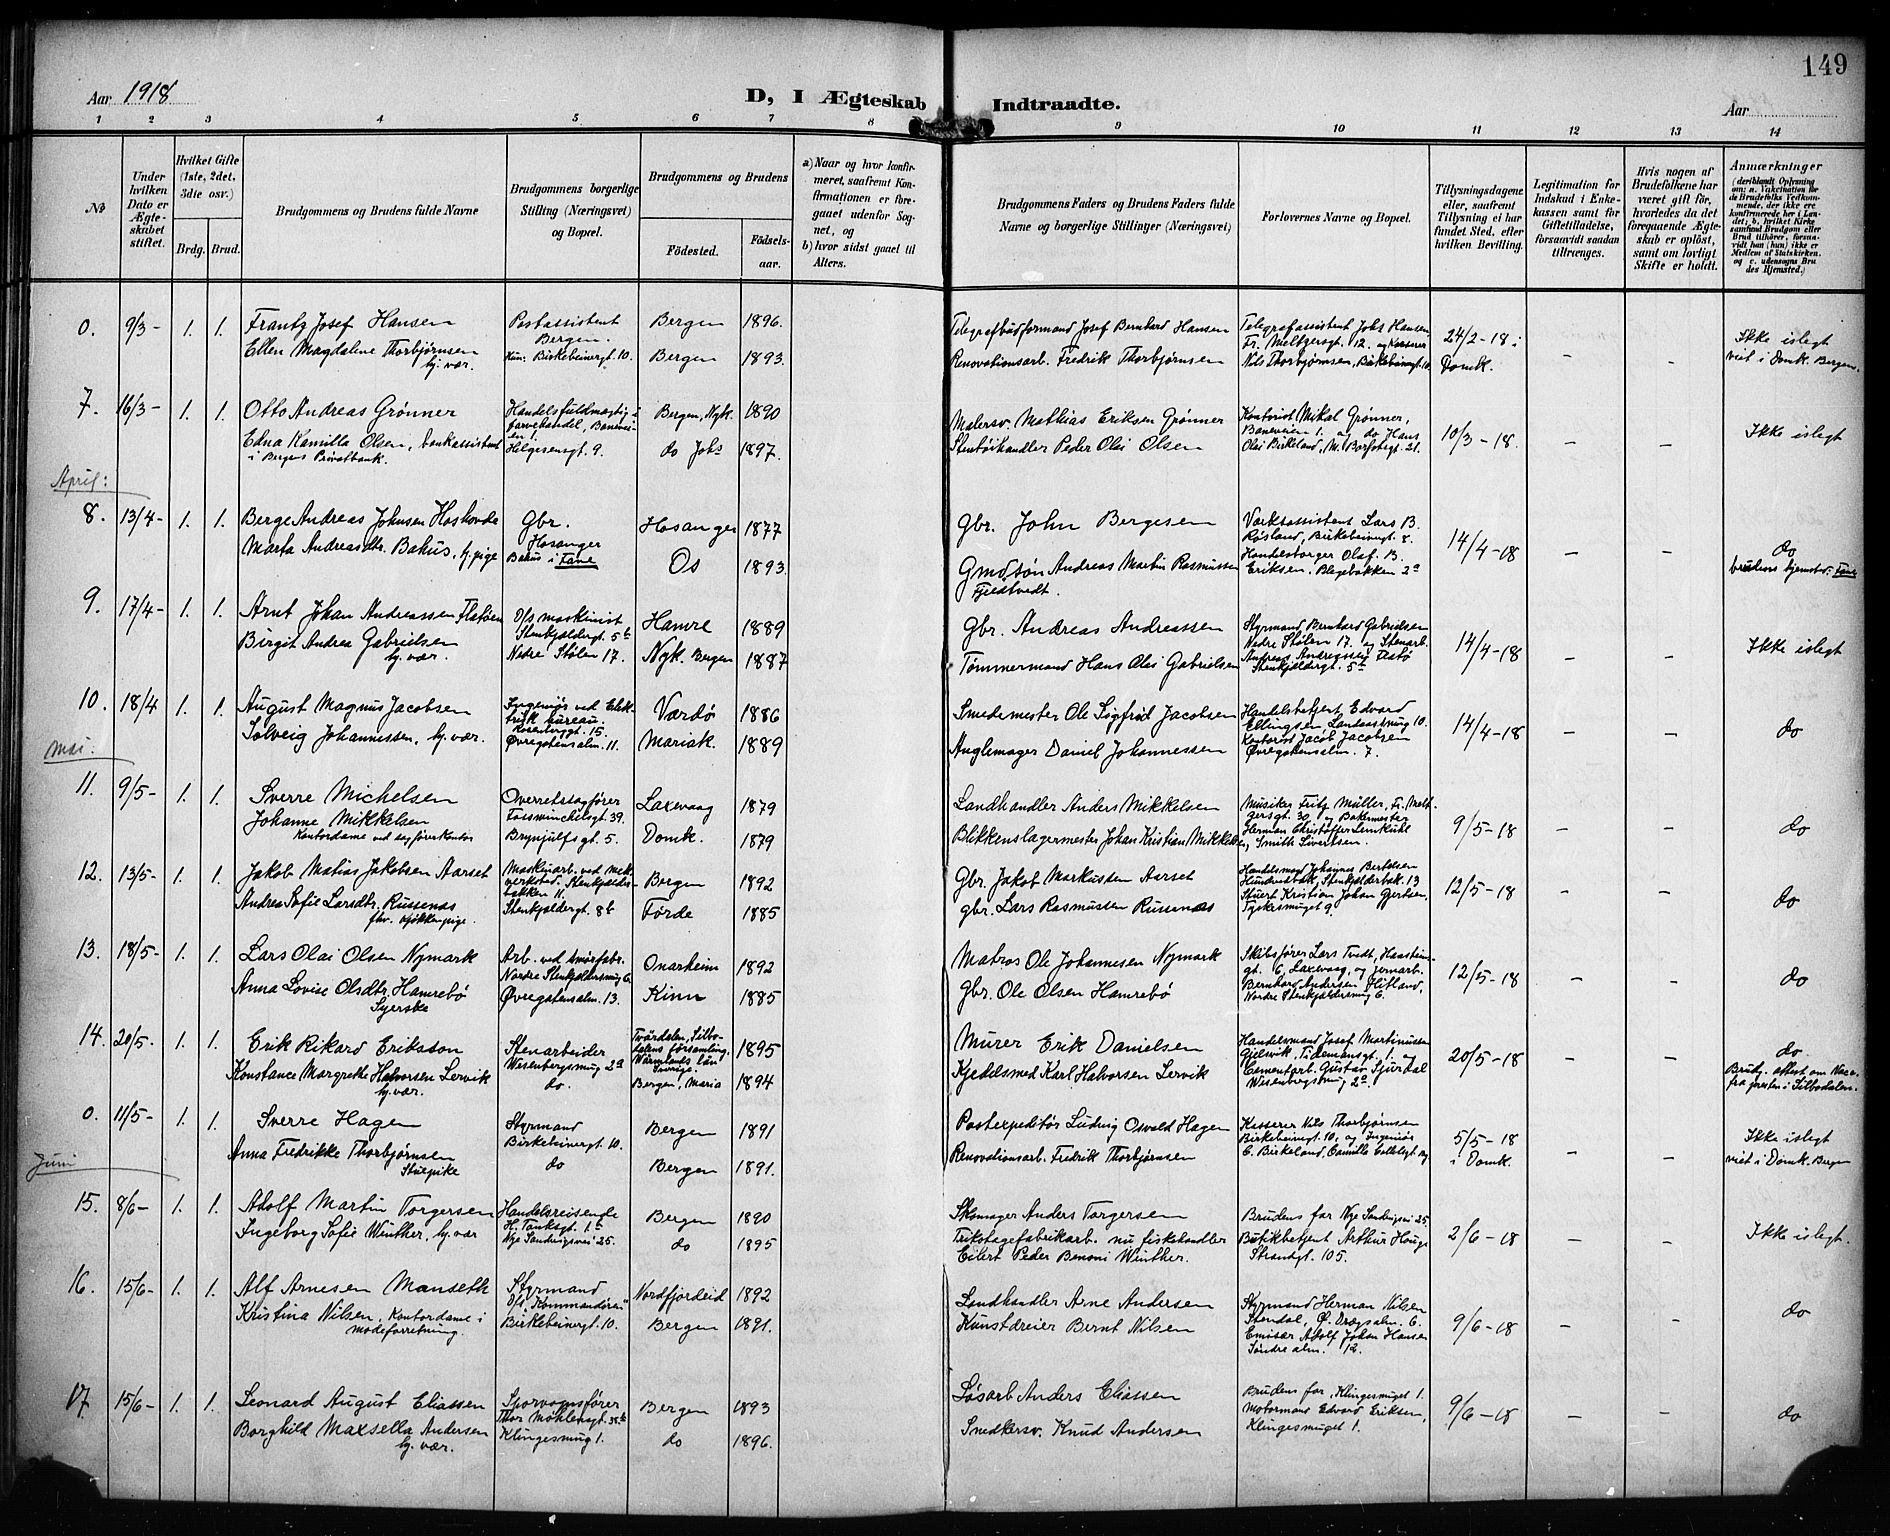 149
Aar 1918
D, I Ægteskab Indtraadte.
Aar
1 2 3 4 5 6 7 8 9 10 11 12 13 14
№
Under hvilken Dato er Ægteskabet stiftet.
Hvilket Gifte (1ste, 2det, 3die osv.)
Brdg. Brud.
Brudgommens og Brudens fulde Navne
Brudgommens borgerlige Stilling (Næringsvei) og Bopæl.
Brudgommens og Brudens
Fødested. Fødselsaar.
a) Naar og hvor konfirmeret, saafremt Konfirmationen er foregaaet udenfor Sognet, og
b) hvor sidst gaaet til Alters.
Brudgommens Faders og Brudens Faders fulde Navne og borgerlige Stillinger (Næringsvei)
Forlovernes Navne og Bopæl.
Tillysningsdagene eller, saafremt Tillysning ei har fundet Sted, efter hvilken Bevilling.
Legitimation for Indskud i Enkekassen samt for Giftetilladelse, forsaavidt saadan tiltrænges.
Hvis nogen af Brudefolkene har været gift før, hvorledes da det foregaaende Ægteskab er opløst, samt om lovligt Skifte er holdt.
Anmærkninger
(deriblandt Oplysning om: a. Vakcination for de Brudefolks Vedkommende, der ikke ere konfirmerede her i Landet; b. hvilket Kirkesamfund Brudgom eller Brud tilhører, forsaavidt han (hun) ikke er Medlem af Statskirken, og c. udensogns Brudes Hjemsted.)
0. 9/3- 1. 1. Frantz Josef Hansen Postassistent Bergen. Bergen 1896. Telegrafbudformand Josef Bernhard Hansen Telegrafassistent Johs Hansen Fr. Meltzersgt. 12. og Kasserer 24/2-18 i Domk. - - Ikke islegt
Ellen Magdalene Thorbjørnsen hj. vær. Hun: Birkebeinergt. 10. Bergen 1893. Renovationsarb. Fredrik Thorbjørnsen Nils Thorbjørnsen, Birkebeinergt. 10 viet i Domk. Bergen.
7. 16/3- 1. 1. Otto Andreas Grønner Handelsfuldmægtig i farvehandel, Baneveien 1. Bergen, Nyk. 1890 Malersv. Mathias Eriksen Grønner Kontorist Mikal Grønner, Baneveien 1. og do Hans 10/3-18. - - Ikke islegt
Edna Kamilla Olsen, bankassistent i Bergens Privatbank. Helgesensgt. 9. do Johs 1897. Stentøihandler Peder Olai Olsen Olai Birkeland, M. Børstegt. 21.
April:
8. 13/4- 1. 1. Berge Andreas Johnsen Gbr. Hosanger Hosanger 1877 Gbr. John Bergesen Værksassistent Lars B. Røsland, Birkebeinergt. 8. 14/4-18 - - do
Marta Andreasdtr. Bakus, hj. pige Bakus i Fane Os 1893. Gmdsøn Andreas Martin Rasmussen Fjeldtvedt. Handelsborger Olaf B. Eriksen, Blegebakken 2a brudens hjemsted: Fane
9. 17/4- 1. 1. Arnt Johan Andreassen Flatøen D/s maskinist Stenkjeldergt. 5b Hamre 1889 Gbr. Andreas Andreassen Styrmand Bernhard Gabrielsen Nedre Stølen 17. og Stenarb. 14/4-18 - - Ikke islegt
Birgit Andrea Gabrielsen hj. vær. Nedre Stølen 17. Nyk. Bergen 1887 Tømmermand Hans Olai Gabrielsen Andreas Flatø Stenkjeldergt. 5b
10. 18/4 1. 1. August Magnus Jacobsen Ingeniør ved Elektrisk bureau. Rosenbergt. 15. Vardø 1886 Smedemester Ole Sigfrid Jacobsen Handelsbetjent Edvard Ellingsen 10. 14/4-18 - - do
Solveig Johannessen, hj. vær. Øvregatensalm. 11. Mariak. 1889 Anglemager Daniel Johannessen Kontorist Jacob Jacobsen Øvregatensalm. 7.
Mai.
11. 9/5- 1. 1. Sverre Michelsen Overretssagfører Fosswinckelsgt. 39. Laxevaag 1879 Landhandler Anders Mikkelsen Musiker Fritz Müller, Fr. Meltzersgt. 30, og Bakermester 9/5-18 - - do
Johanne Mikkelsen Kontordame ved sagførerkontor Brynjulfsgt. 5. Domk. 1879 Blikkenslagermester Johan Kristian Mikkelsen Herman Christoffer Lemkuhl, Smith Sivertsen.
12. 13/5- 1. 1. Jakob Matias Jakobsen Aarset Maskinarb. ved mek. verksted. Stenkjelderbakken 11. Bergen 1892 Gbr Jakob Markussen Aarset Handelsmand Johannes Bertelsen Hundvedbak, Stenkjelderbak. 13 12/5-18 - - do
Andrea Sofie Larsdtr. Russenæs fhv. kjøkkenpige. Stenkjeldergt. 8b Førde 1885 gbr. Lars Rasmussen Russenæs Stuert Kristian Johan Gjertsen, Tyskesmuget 9.
13. 18/5- 1. 1. Lars Olai Olsen Nymark Arb. ved smørfabr. Nordre Stenkjeldersmug 6. Onarheim 1892 Matros Ole Johannesen Nymark Skibsfører Lars Tvedt, Haasteinsgt. 6, Laxevaag, og jernarb. 12/5-18 - - do
Anna Lovise Olsdtr. Hamrebø Syerske Øvregatensalm. 13. Kinn 1885 gbr. Ole Olsen Hamrebø Bernhard Andersen Flitland, Nordre Stenkjeldersmug 6.
14. 20/5- 1. 1. Erik Rikard Eriksson Stenarbeider Wesenbergsmug 2a Tvärdalen, Silbodalens församling Wärmlands Län Sverige 1895 Murer Erik Danielsen Handelsmand Josef Martinussen Gjelsvik, Tidemansgt. 1. og 20/5-18 - - do
Konstance Margrethe Halvorsen Lervik hj. vær. do. Bergen, Maria 1894 Kjedelsmed Karl Halvorsen Lervik Cementarb. Gustav Sjurdal Wesenbergsmug 2a. Brudg. attest om Vacc. fra presten i Silbodalen.
0. 11/5- 1. 1. Sverre Hagen Styrmand Birkebeinergt. 10. Bergen 1891 Postexpeditør Ludvig Osvald Hagen Kasserer Nils Thorbjørnsen Birkebeinergt. 10, og Ingeniør 5/5-18 i Domk. - - Ikke islegt
Anna Fredrikke Thorbjørnsen Stuepike do Bergen 1891. Renovationsarb. Fredrik Thorbjørnsen C. Birkeland, Camilla Colletsgt. viet i Domk. Bergen
Juni
15. 8/6- 1. 1. Adolf Martin Torgersen Handelsreisende H. Tanksgt. 1a Bergen 1890 Skomager Anders Torgersen Brudens far Nye Sandviksvei 25. 2/6-18 - - Ikke islegt.
Ingeborg Sofie Winther, hj. vær Nye Sandviksvei 25. do 1895 Trikotagefabrikarb. nu fiskehandler Eilert Peder Benoni Winther. Butikbetjent Arthur Hauge Strandgt. 105.
16. 15/6- 1. 1. Alf Arnesen Mandseth Styrmand D/s "Kommandøren" Nordfjordeid 1892 Landhandler Arne Andersen Styrmand Herman Nilsen Stendal, Ø. Drægsalm. 6. 9/6-18 - - do
Kristina Nilsen, Kontordame i modeforretning. Birkebeinergt. 10. Bergen 1891. Kunstdreier Bernt Nilsen Emisær Adolf Johan Hansen Søndre alm. 12.
17. 15/6- 1. 1. Leonard August Eliassen Sporvognsfører Thor Møhlensgt. 35b Bergen 1893 Løsarb Anders Eliassen Brudens far, Klingesmuget 1. 9/6-18 - - do
Borghild Maxsella Andersen hj. vær. Klingesmug 1. do 1896. Snedkersv. Knud Andersen Motormand Edvard Eriksen, Klingesmuget 1.